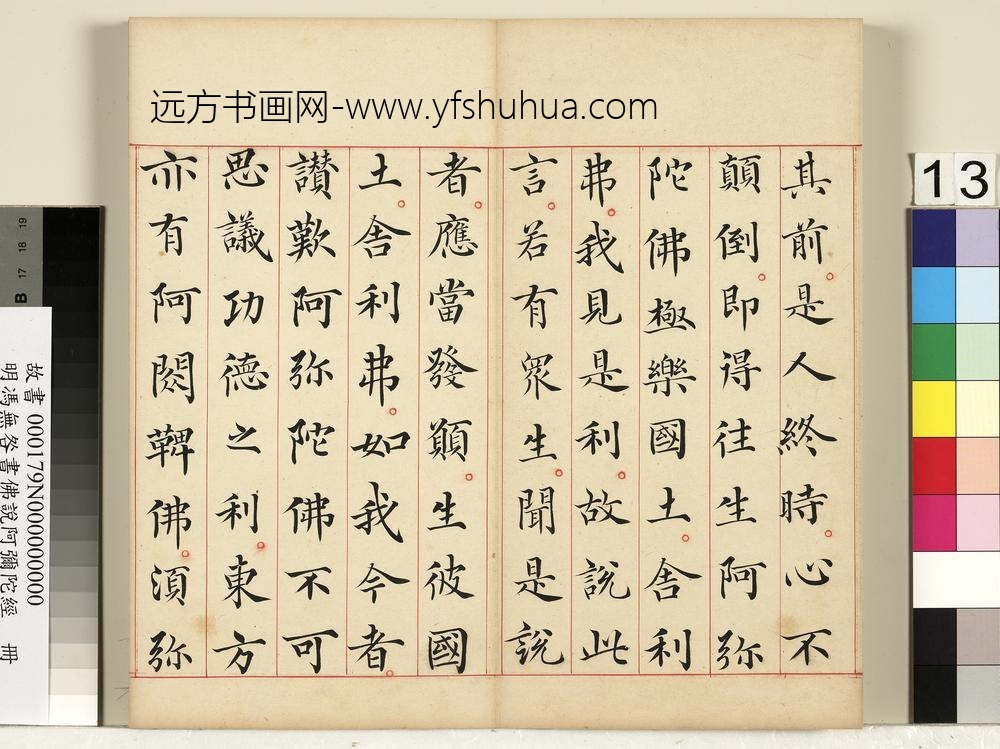 远方书画网-www.yfshuhua.com
其前是人終時心不
顛倒即得往生阿弥
陀佛極樂國土舎利
弗我見是利故說此
言若有眾生聞是說
者應當發願生彼國
土舎利弗如我今者
讃歎阿弥陀佛不可
思議功德之利東方
亦有阿閦鞞佛湏弥
13
19
18
17
B
故書 000179N000000000
明馮無咎書佛說阿彌陀經 冊